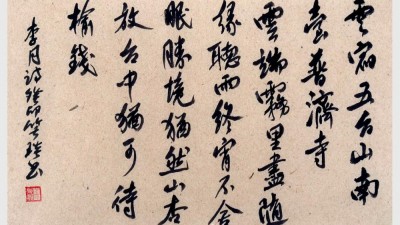 雲宿五台山南
臺普濟寺
雲端霧里盡隨
緣聽雨終宵不舍
眠勝境猶然山杏
放台中猶可待
榆錢
李月詩